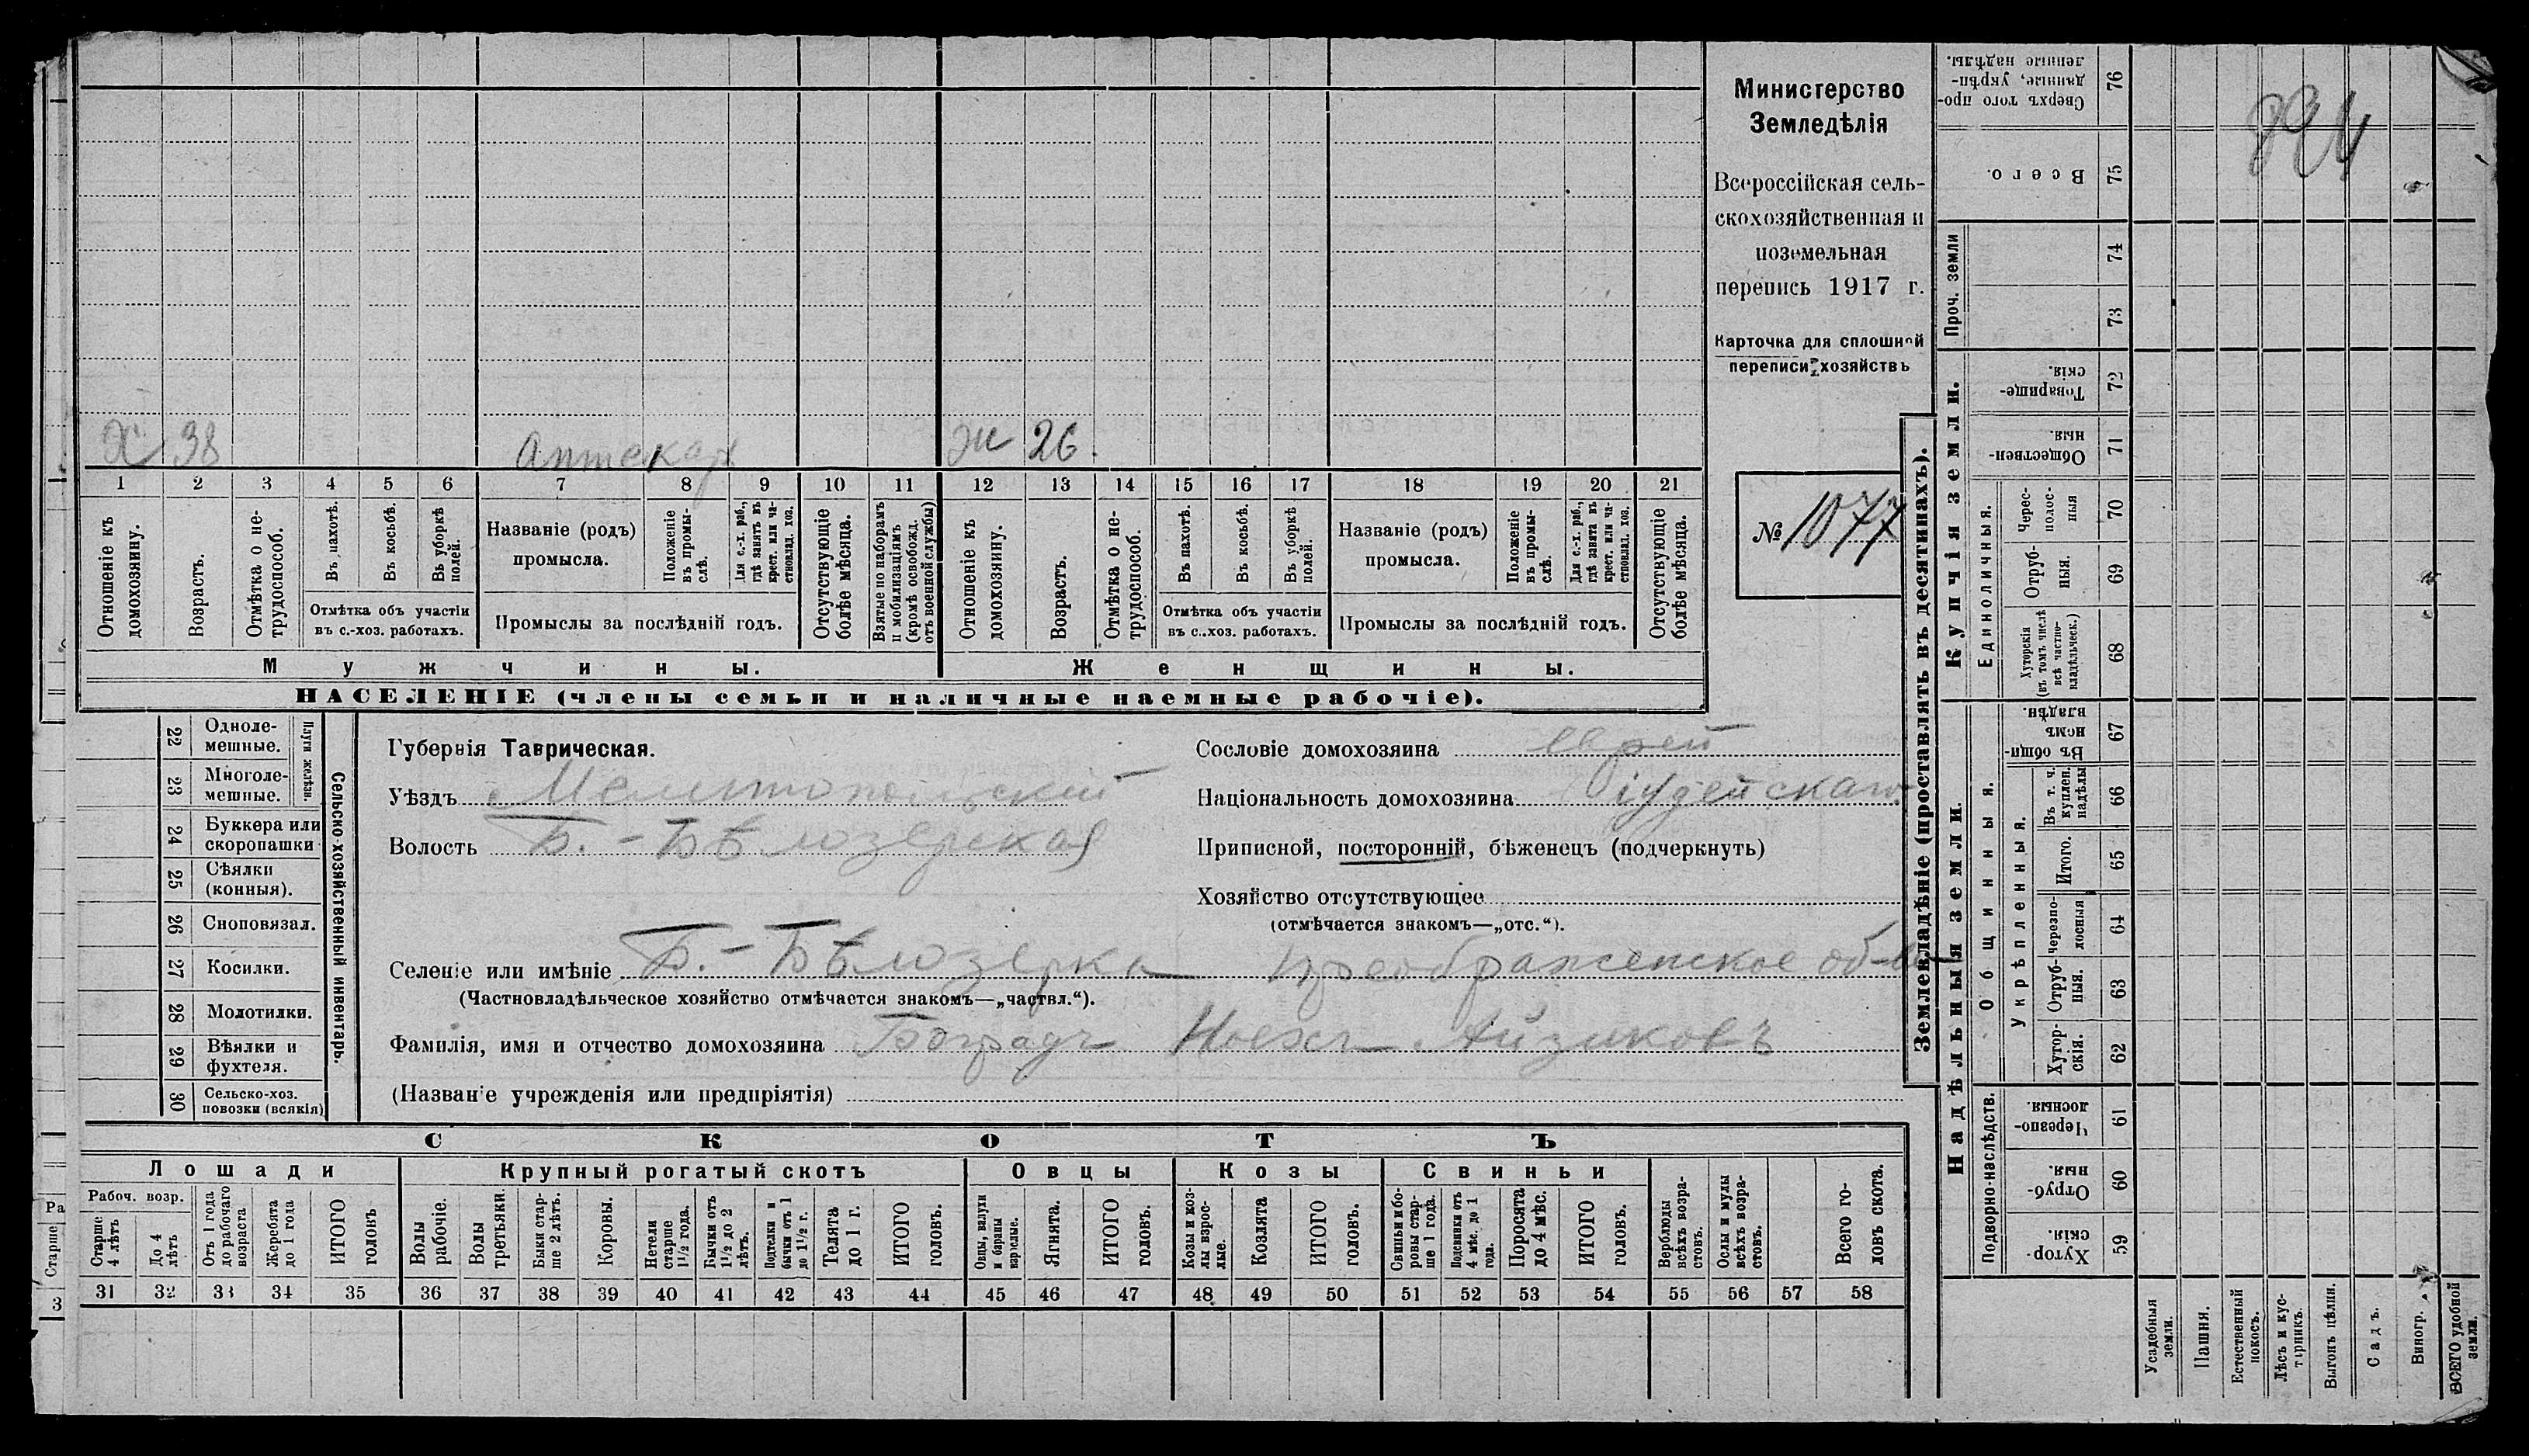 Министерство
Земледѣлія
Всероссійская сель-
скохозяйственная и
поземельная
перепись 1917 г.
Карточка для сплошной
переписи хозяйствъ
№ 1077
894
Х 38 Аптекарь Ж 26.
1 2 3 4 5 6 7 8 9 10 11 12 13 14 15 16 17 18 19 20 21
Отношеніе къ домохозяину.
Возрастъ.
Отмѣтка о не-трудоспособ.
Въ пахотѣ.
Въ косьбѣ.
Въ уборкѣ полей.
Отмѣтка объ участіи
въ с.-хоз. работахъ.
Названіе (родъ)
промысла.
Положеніе въ промы-слѣ.
Для с.-х. раб., гдѣ занятъ въ крест. или ча-стновлад. хоз.
Промыслы за послѣдній годъ.
Отсутствующіе болѣе мѣсяца.
Взятые по наборамъ и мобилизаціямъ (кромѣ освобожд. отъ военной службы)
Отношеніе къ домохозяину.
Возрастъ.
Отмѣтка о не-трудоспособ.
Въ пахотѣ.
Въ косьбѣ.
Въ уборкѣ полей.
Отмѣтка объ участіи
въ с.-хоз. работахъ.
Названіе (родъ)
промысла.
Положеніе въ промы-слѣ.
Для с.-х. раб., гдѣ занята въ крест. или ча-стновлад. хоз.
Промыслы за послѣдній годъ.
Отсутствующіе болѣе мѣсяца.
Мужчины.
Женщины.
НАСЕЛЕНІЕ (члены семьи и наличные наемные рабочіе).
Сельско-хозяйственный инвентарь.
Плуги желѣзн.
22 Одноле-мешные.
23 Многоле-мешные.
24 Буккера или скоропашки
25 Сѣялки (конныя).
26 Сноповязал.
27 Косилки.
28 Молотилки.
29 Вѣялки и фухтеля.
30 Сельско-хоз. повозки (всякія)
Губернія Таврическая.
Уѣздъ Мелитопольский
Волость Б.-Бѣлозерская
Сословіе домохозяина еврей
Національность домохозяина іудейскаго
Приписной, посторонній, бѣженецъ (подчеркнуть)
Хозяйство отсутствующее
(отмѣчается знакомъ—„отс.“).
Селеніе или имѣніе Б.-Бѣлозерка Преображенское об-во
(Частновладѣльческое хозяйство отмѣчается знакомъ—„частвл.“).
Фамилія, имя и отчество домохозяина Боградъ Ноехъ Айзиковъ
(Названіе учрежденія или предпріятія)
СКОТЪ
Лошади
Крупный рогатый скотъ
Овцы
Козы
Свиньи
Рабоч. возр.
Старше 4 лѣтъ
До 4 лѣтъ
Отъ 1 года до рабочаго возраста
Жеребята до 1 года
ИТОГО головъ
Волы рабочіе.
Волы третьяки.
Быки стар-ше 2 лѣтъ.
Коровы.
Нетели старше 1½ года.
Бычки отъ 1½ до 2 лѣтъ.
Подтелки и бычки отъ 1 до 1½ г.
Телята до 1 г.
ИТОГО головъ.
Овцы, валухи и бараны взрослые.
Ягнята.
ИТОГО головъ.
Козы и коз-лы взрос-лые.
Козлята
ИТОГО головъ.
Свиньи и бо-ровы стар-ше 1 года.
Подсвинки отъ 4 мѣс. до 1 года.
Поросята до 4 мѣс.
ИТОГО головъ.
Верблюды всѣхъ возра-стовъ.
Ослы и мулы всѣхъ возра-стовъ.
Всего го-ловъ скота.
31 32 33 34 35 36 37 38 39 40 41 42 43 44 45 46 47 48 49 50 51 52 53 54 55 56 57 58
Ра
Старше
3
Землевладѣніе (проставлять въ десятинахъ).
Купчія земли.
Надѣльныя земли.
Проч. земли
Единоличныя.
Общинныя.
Укрѣпленныя.
Подворно-наслѣдств.
Сверхъ того про-данные, укрѣп-ленные надѣлы. 76
Всего. 75
74
73
Товарище-скія. 72
Обществен-ныя. 71
Черес-полос-ныя 70
Отруб-ныя. 69
Хуторскія (въ томъ числѣ всѣ частно-владѣльческ.) 68
Въ общи-номъ владѣн. 67
Въ т. ч. куплен. надѣлы 66
Итого. 65
Черезпо-лосныя 64
Отруб-ныя. 63
Хутор-скія. 62
Черезпо-лосныя. 61
Отруб-ныя. 60
Хутор-скія 59
Усадебныя земли.
Пашня.
Естественный покосъ.
Лѣсъ и кус-тарникъ.
Выгонъ цѣлин.
Садъ.
Виногр.
ВСЕГО удобной земли.